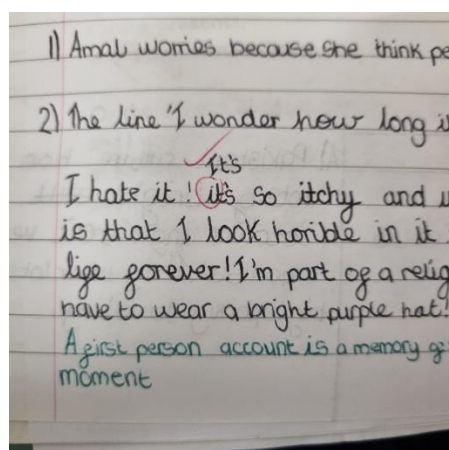 1) Amal worries because she think pe
2) The line 'I wonder how long i
It's
I hate it! it's so itchy and u
is that I look horible in it.
lige gorever! I'm part og a relig
have to wear a bright purple hat!
A girst person account is a memory g
moment